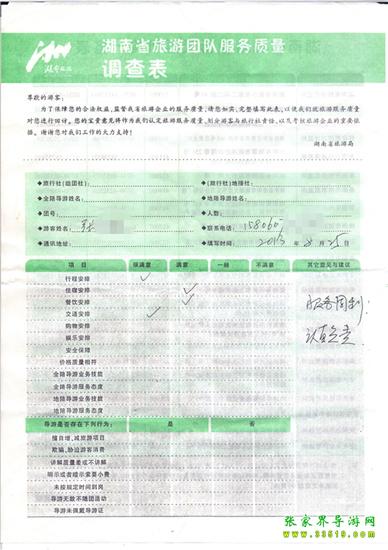 湖南省旅游团队服务质量
调查表
尊敬的游客:
为了保障您的合法权益,监督我省旅游企业的服务质量,请您如实、完整填写此表,以便我们就旅游服务质量
对您进行回访。您的宝贵意见将作为我们认定旅游服务质量、划分游客与旅行社责任、以及考核旅游企业的重要依
据。谢谢您对我们工作的大力支持!
湖南省旅游局
◆旅行社(组团社): ◆(旅行社)地接社:
◆全陪导游姓名: ◆地陪导游姓名:
◆团号: ◆人数:
◆游客姓名: 张 ◆联系电话: 158065
◆通讯地址: ◆填写时间: 2013年 月25日
项目 很满意 满意 一般 不满意 其它意见与建议
行程安排 ✓
住宿安排 ✓
餐饮安排 ✓ 服务周到
交通安排 ✓
购物安排 认真负责
娱乐安排
安全保障
价格质量相符
全陪导游业务技能
全陪导游服务态度
地陪导游业务技能
地陪导游服务态度
导游是否存在下列行为: 是 否
擅自增、减旅游项目
欺骗、胁迫游客消费
讲解质量差或不讲解
明示或者暗示索要小费
未按规定时间到岗
导游无故不随团活动
导游未佩戴导游证
张家界导游网
www.33519.com